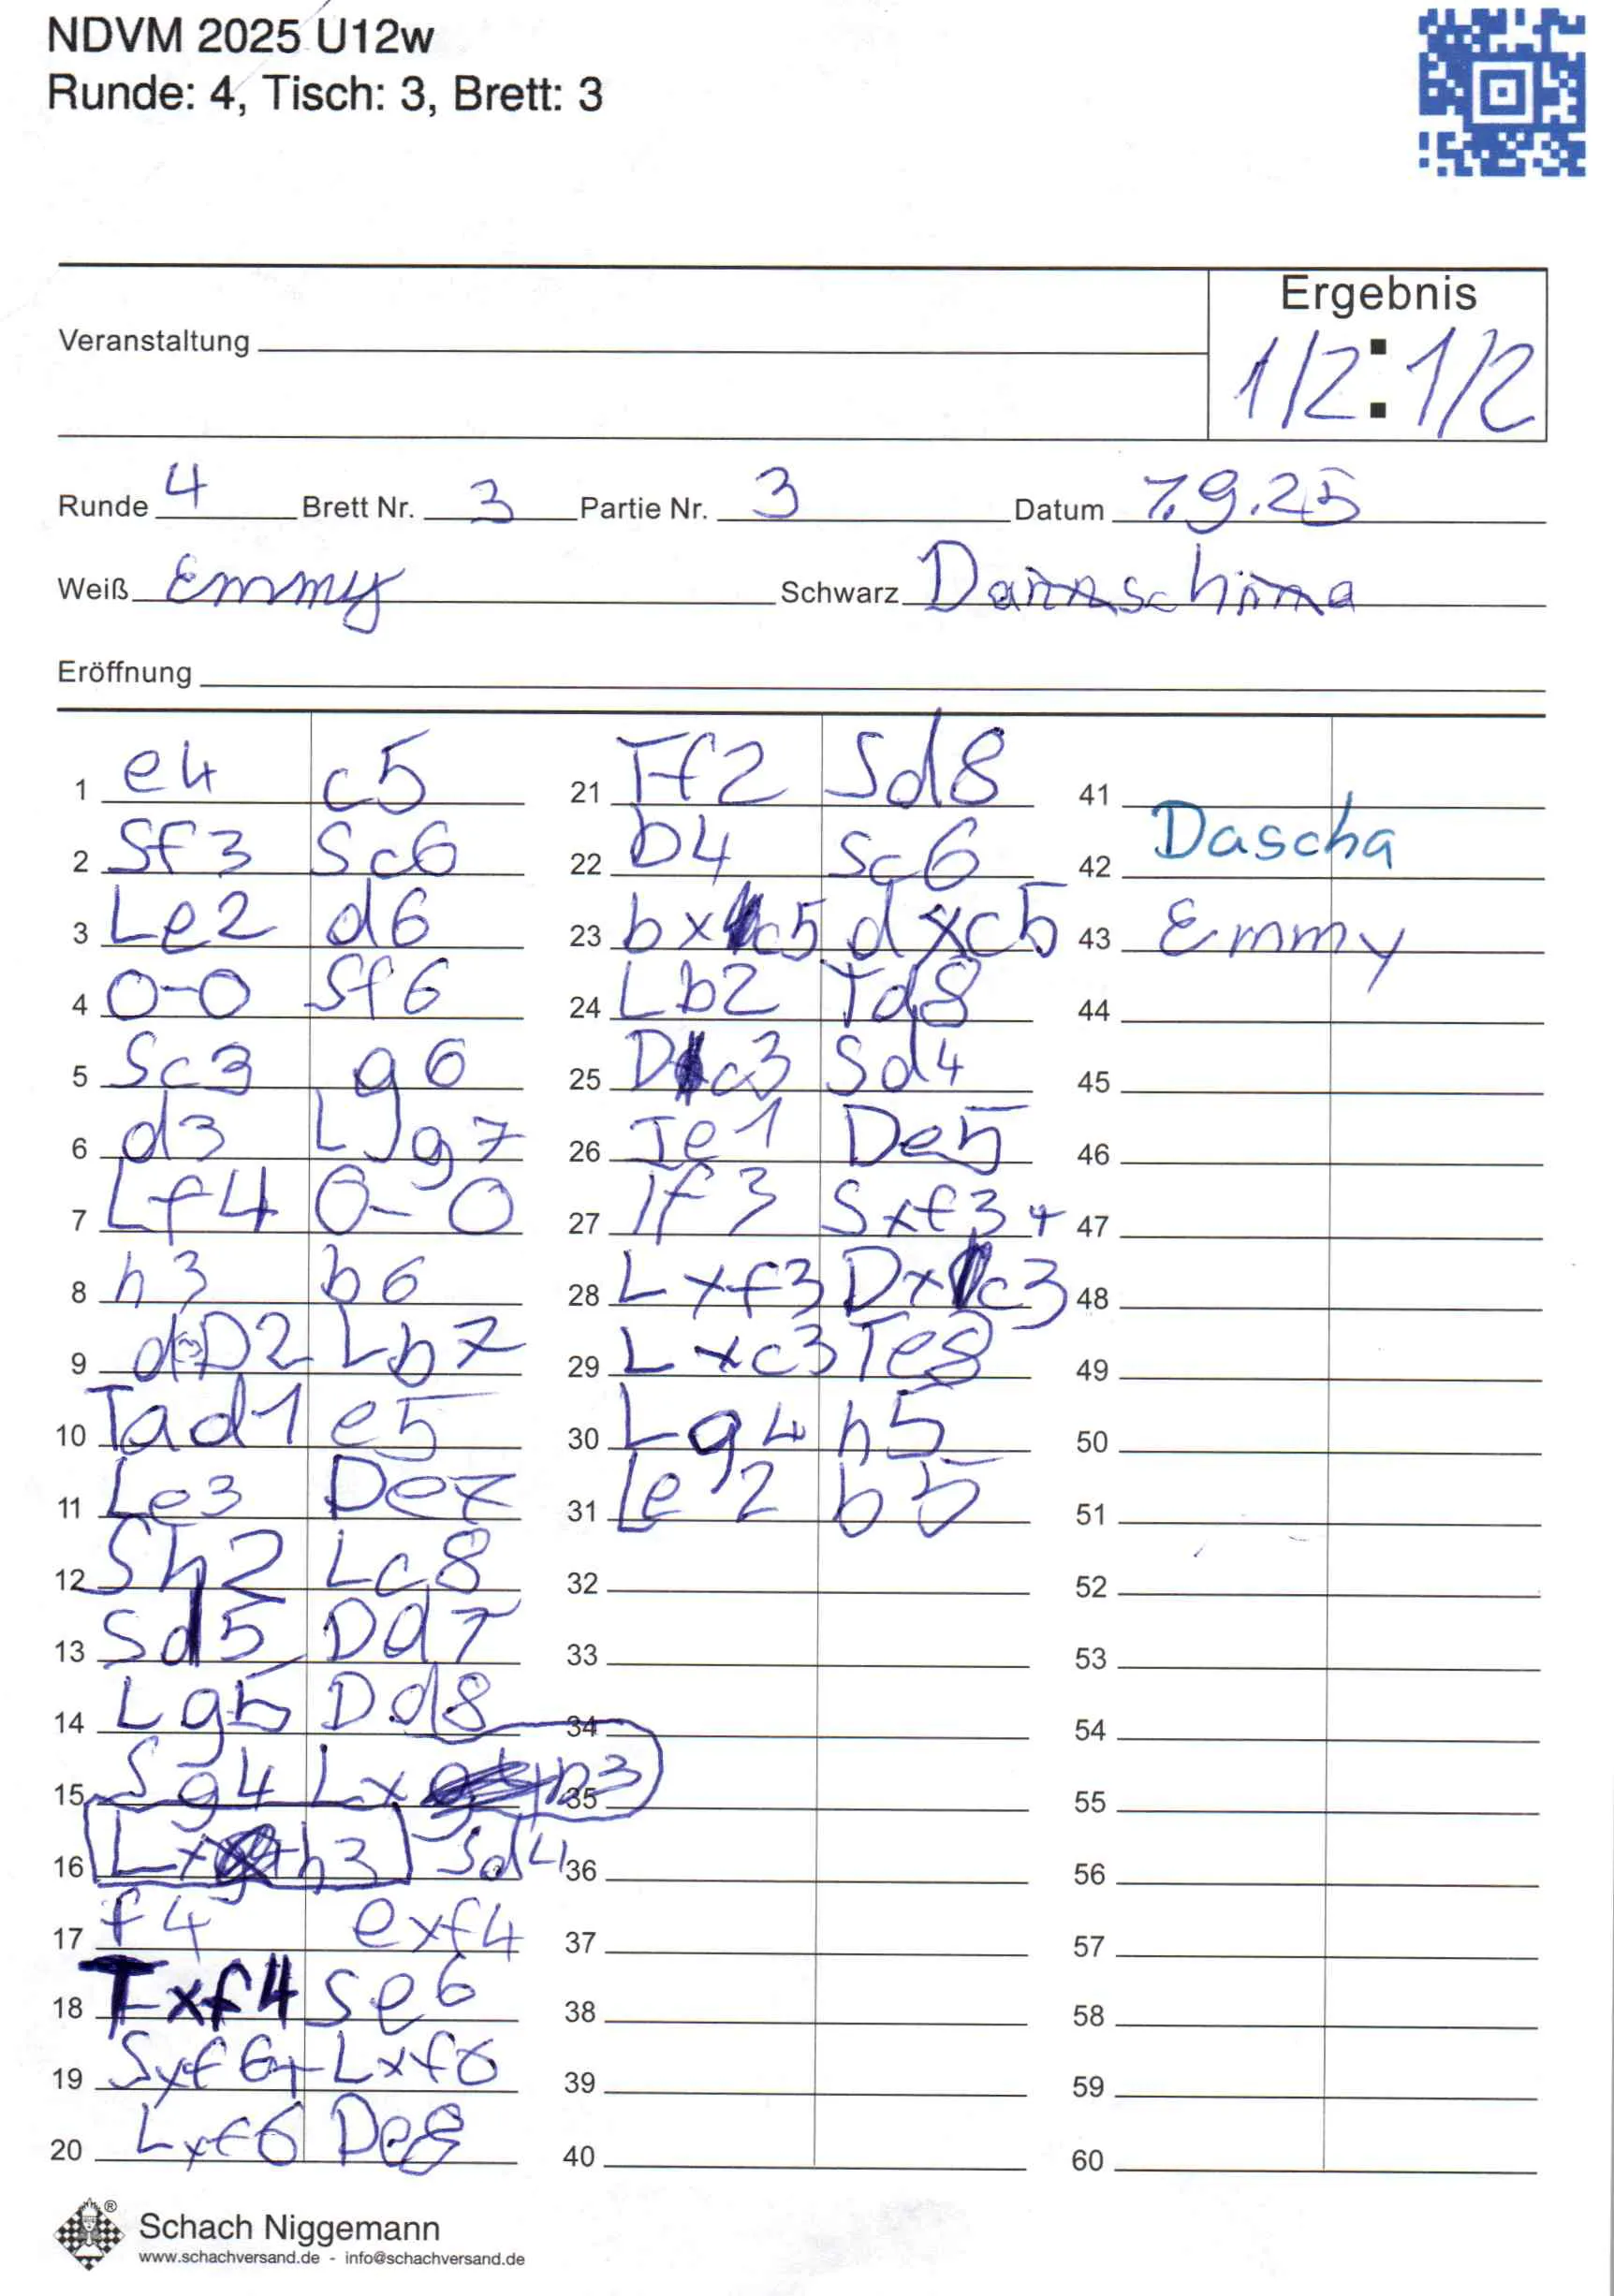 NDVM 2025 U12w
Runde: 4, Tisch: 3, Brett: 3
Ergebnis
Veranstaltung 1/2 : 1/2
Runde 4 Brett Nr. 3 Partie Nr. 3 Datum 7.9.25
Weiß Emmy Schwarz
Eröffnung
1 e4 c5 21 Tf2 Sd8 41
2 Sf3 Sc6 22 b4 Sc6 42 Dascha
3 Le2 d6 23 bxc5 dxc5 43 Emmy
4 0-0 Sf6 24 Lb2 Td8 44
5 Sc3 g6 25 Dc3 Sd4 45
6 d3 Lg7 26 Te1 De5 46
7 Lf4 0-0 27 Tf3 Sxf3+ 47
8 h3 b6 28 Lxf3 Dxc3 48
9 D2 Lb7 29 Lxc3 Te8 49
10 Tad1 e5 30 Lg4 h5 50
11 Le3 De7 31 Le2 b5 51
12 Sh2 Lc8 32 52
13 Sd5 Dd7 33 53
14 Lg5 Dd8 34 54
15 Sg4 Lxh3 35 55
16 Lxh3 Sd4 36 56
17 f4 exf4 37 57
18 Txf4 Se6 38 58
19 Sxf6+ Lxf6 39 59
20 Lxf6 De8 40 60
Schach Niggemann
www.schachversand.de - info@schachversand.de